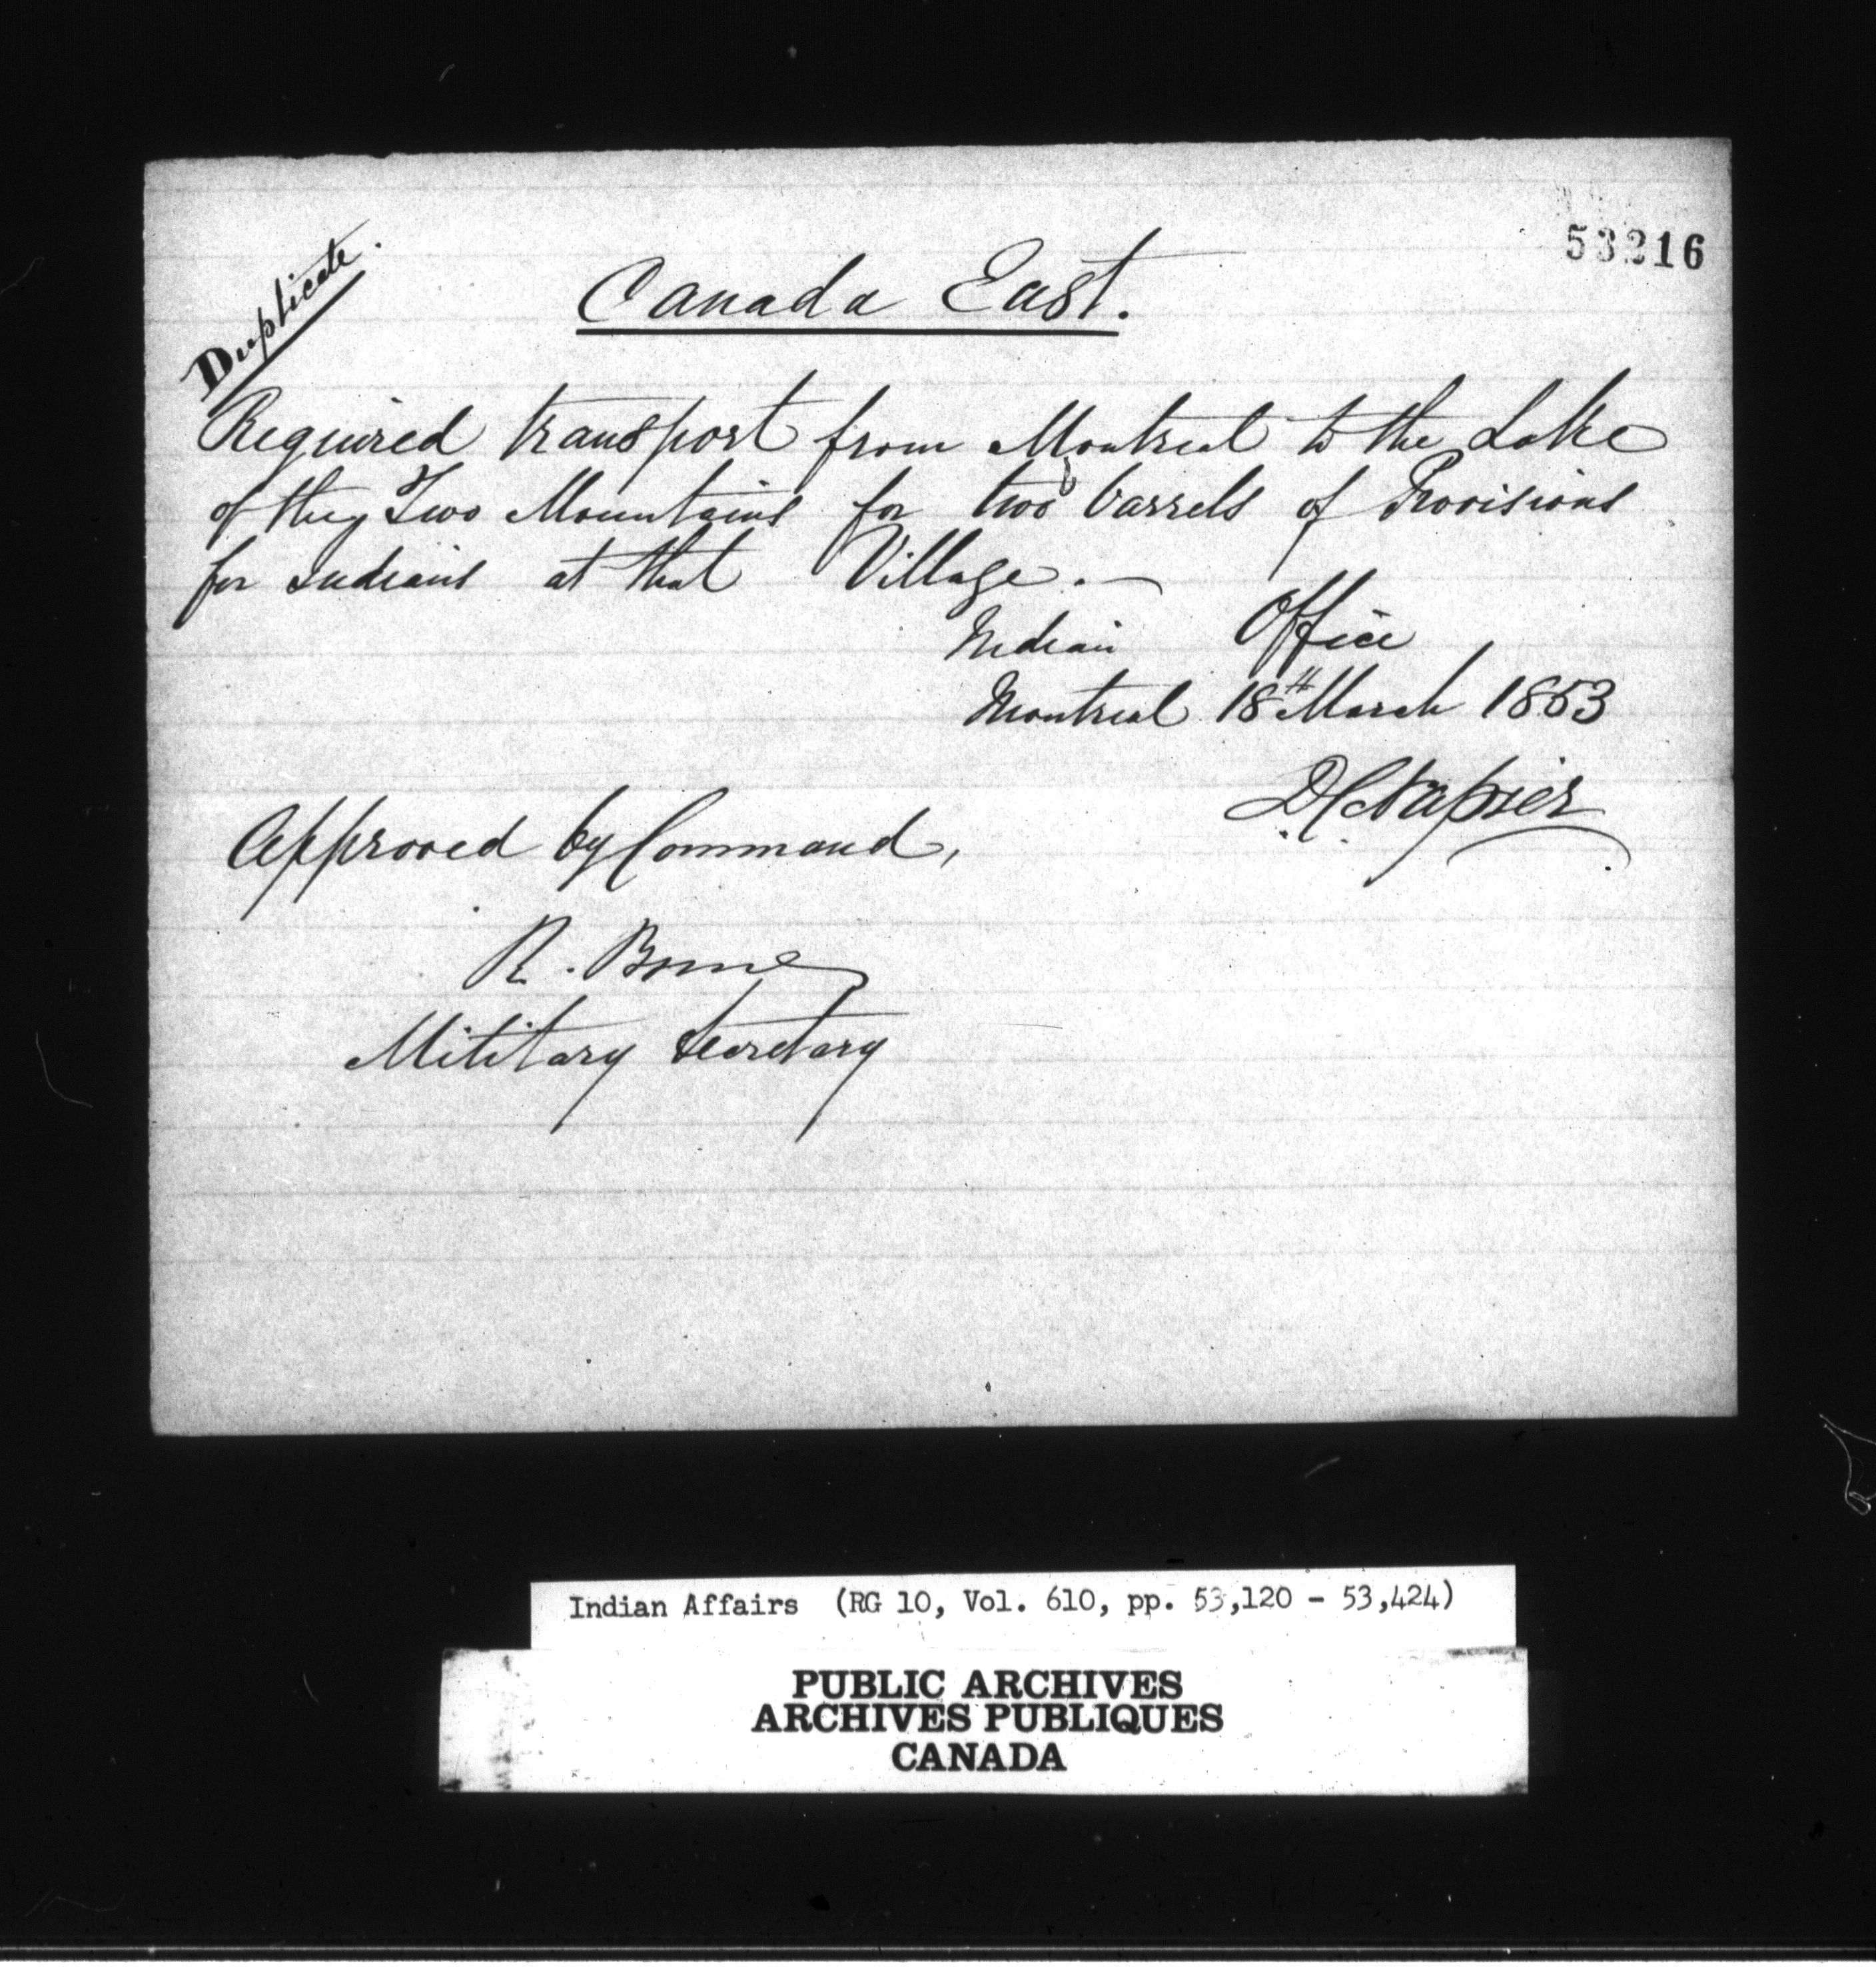 53216
Duplicate.
Canada East.
Required transport from Montreal to the Lake
of the Two Mountains for two barrels of Provisions
for Indians at that Village. —
Indian Office
Montreal 18th March 1853
D C Napier
Approved by Command,
R.
Military Secretary
Indian Affairs (RG 10, Vol. 610, pp. 53,120 - 53,424)
PUBLIC ARCHIVES
ARCHIVES PUBLIQUES
CANADA